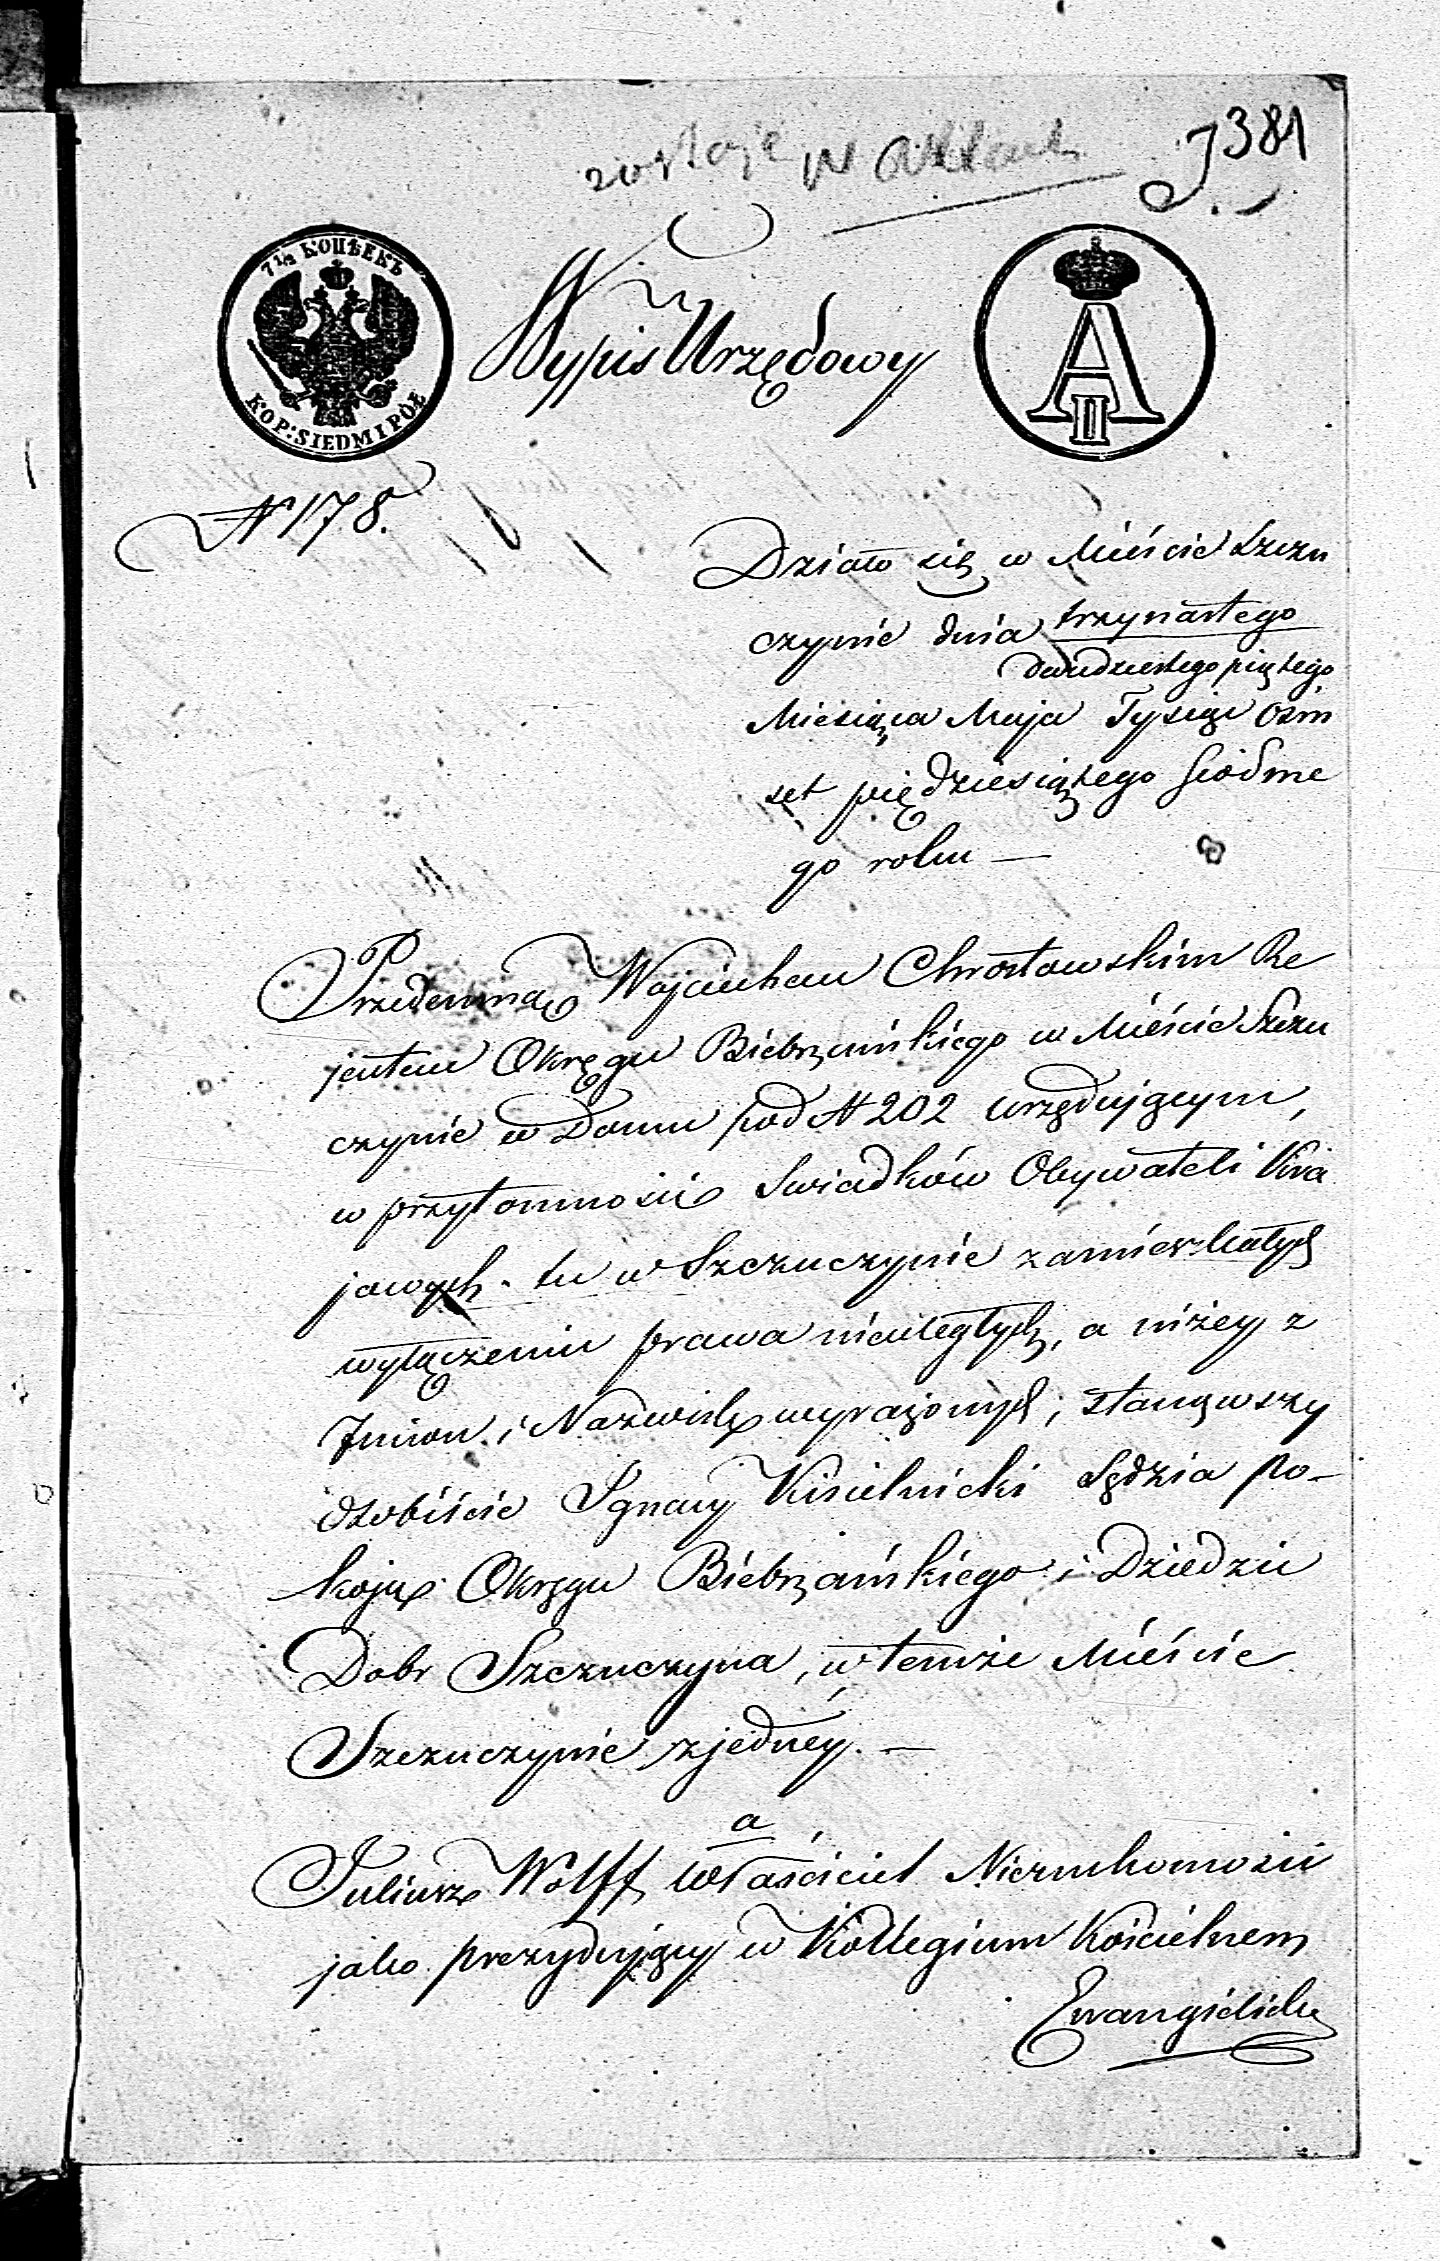 zostaje w aktach
381
7½ КОПѢЕКЪ
KOP: SIEDM I PÓŁ
Wypis Urzędowy
A II
N 178.
Działo się w Mieście Szczu
czynie dnia trzynastego
dwudziestego piątego
Miesiąca Maja Tysiąc Ośm
set pięćdziesiątego Siódme
go roku —
Przedemną Wojciechem Chrostowskim Re
jentem Okręgu Biebrzańskiego w Mieście Szczu
czynie w Domu pod N 202 urzędującym,
w przytomności Swiadków Obywateli Kra
jowych tu w Szczuczynie zamieszkałych
wyłączeniu prawa nieuległych, a niżey z
Imion i Nazwisk wyrażonych; stanąwszy
osobiście Ignacy Kisielnicki Sędzia Po-
koju Okręgu Biebrzańskiego i Dziedzic
Dobr Szczuczyna, w temże Mieście
Szczuczynie z jedney. —
a
Juliusz Wolff właściciel Nieruchomości
jako prezydujący w Kollegium Kościelnem
Ewangielicko